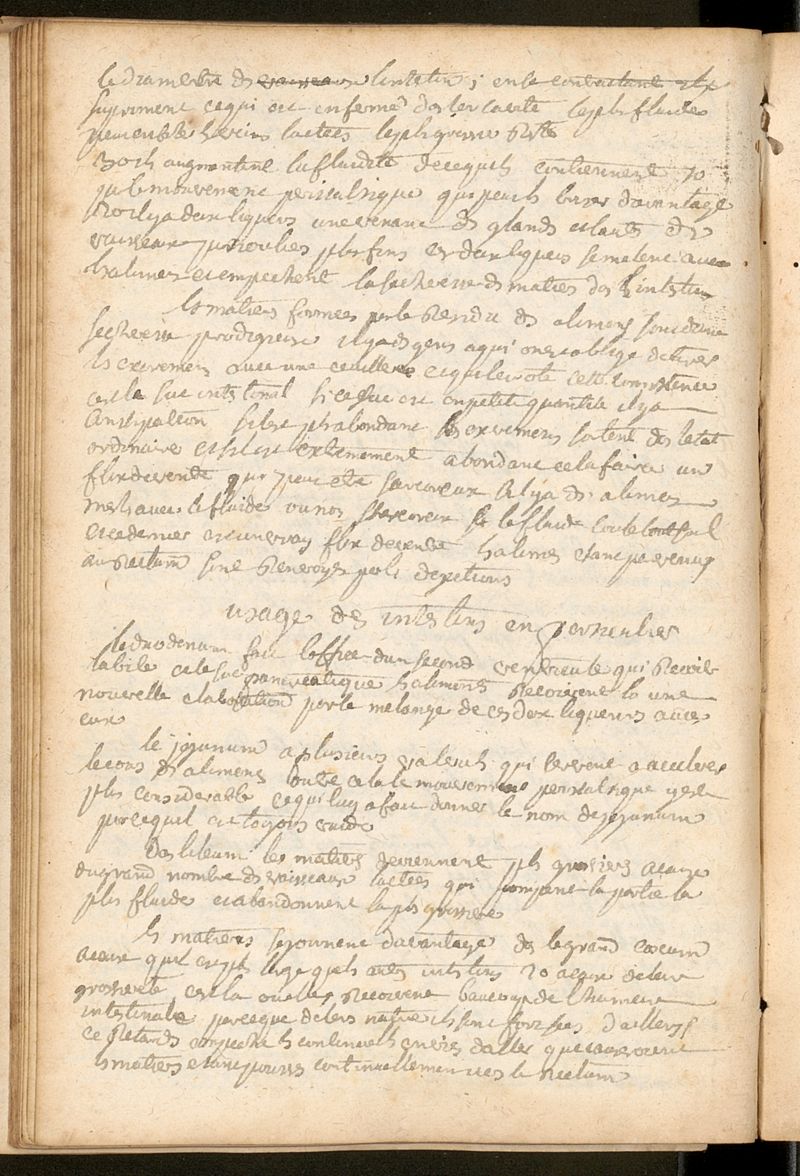 le diametre ds vaisseaux lintestin ; en le contractant ils
supriment ce qui est enfermé ds leur cavité le plus fluide
peu enble ls veines lactées le plus grossier Reste
augmentent la fluidité de ce quils contiennent 10
par le mouvement peristaltique qui peut briser davantage
2o il y a dans liqueurs une venant ds glands et lautre ds
vaisseaux plus fins et dans liqueurs se melent avec
ls alimens et empechent la secheresse ds matieres ds ls intestins
ls matieres formées par le Residu ds alimens sont dune
secheresse prodigieuse il y a ds gens a qui on est obligé de tirer
ls excremens avec une cuillere ce qui leur ote cette consistence
est le suc intestinal si ce suc est en petite quantité il y a
Constipation sil est plus abondant ls excremens sortent ds letat
ordinaire et sil est extremement abondant cela faira un
flux de ventre qui peut etre stercoreux sil y a ds alimens
meslés avec le fluide ou non stercoreux si le fluide coule tout seul
et ce dernier est un vray flux de ventre ls alimens etans parvenus
au Rectum sont Renvoyés par ls dejections
usage des intestins en particulier
le duodenum fait loffice dun second ventricule qui Recoit
la bile et le suc pancreatique ls alimens Recoivent la une
nouvelle elaboration par le melange de ces deux liqueurs avec
eux
le jejunum a plusieurs valvules qui servent a accelerer
le cours ds alimens outre cela le mouvement peristaltique y est
plus considerable ce qui luy a fait donner le nom de jejunum
parce quil est toujours vuide
Ds lileum les matieres deviennent plus grossieres a cause
du grand nombre de vaisseaux lactées qui pompent la partie la
plus fluide et abandonnent la plus grossiere
ls matieres sejournent davantage ds le grand coecum
a cause quil est plus large quels autres intestins 20 a cause de leur
grossiereté cest la ou elles Recoivent beaucoup de lhumeur
intestinale parce que de leur nature ils sont fort secs dailleurs
ce Retard empeche ls continuels envies daller que causeroient
ls matieres etans poussés continuellement vers le Rectum